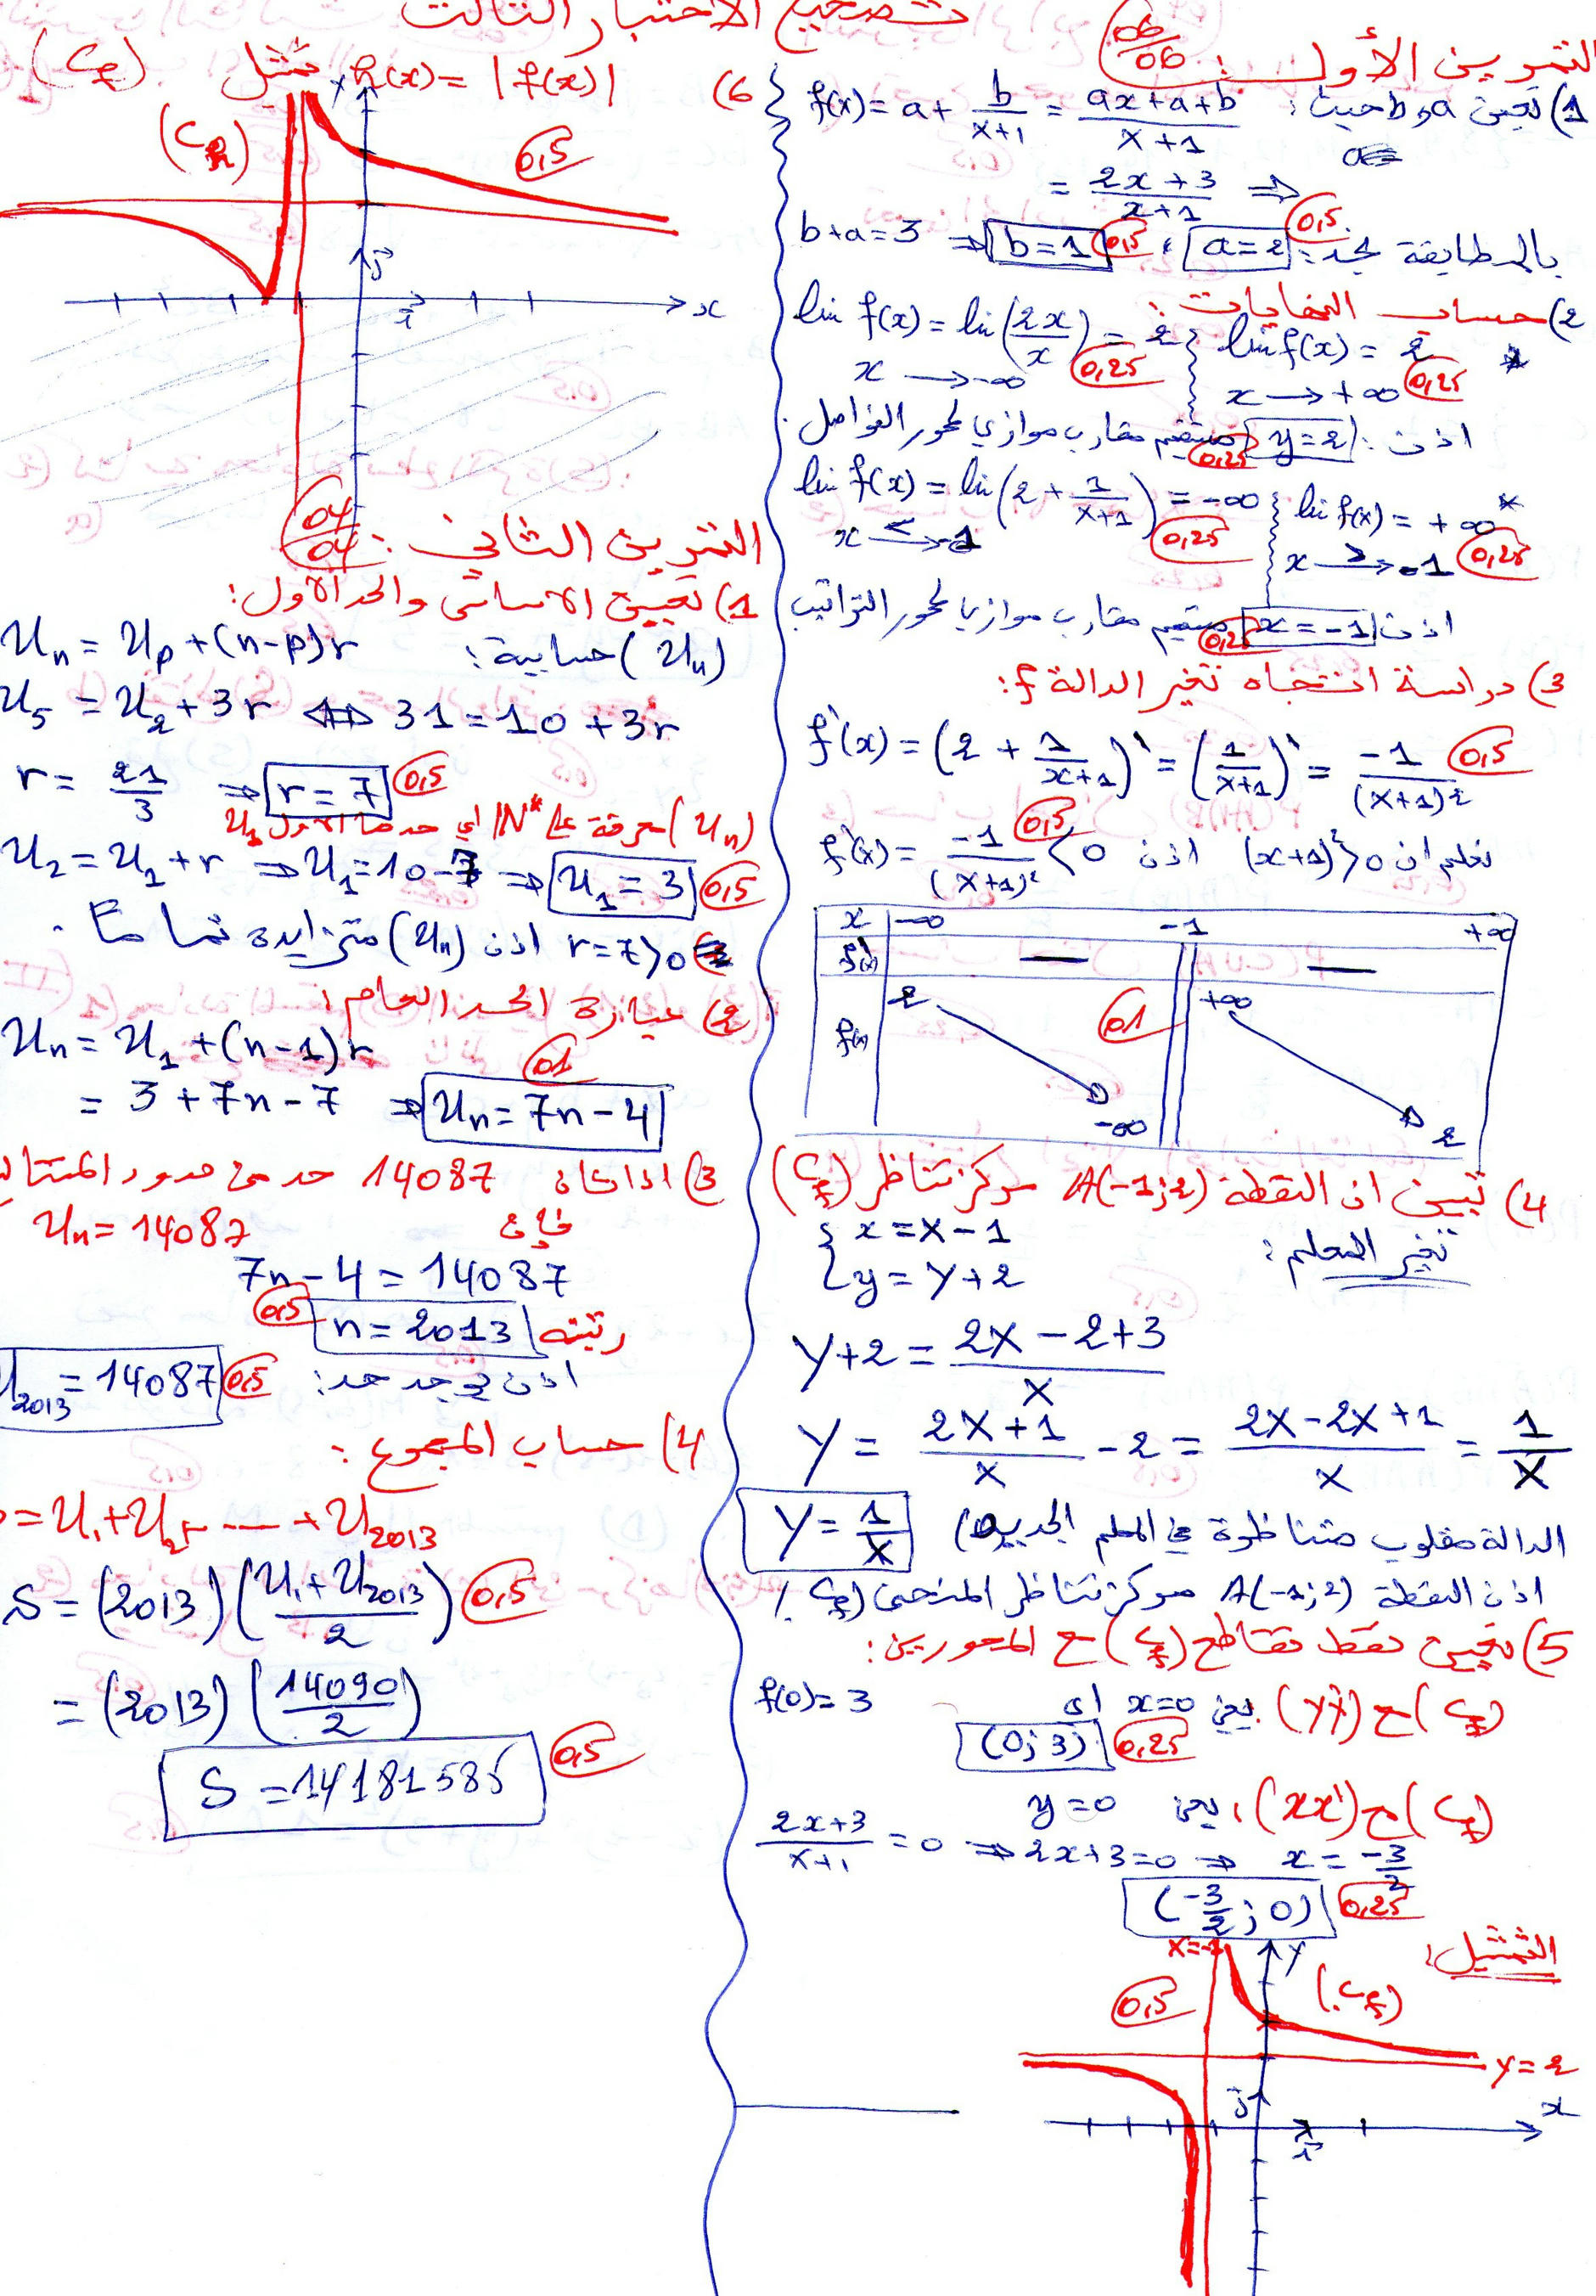 تصحيح الاختبار الثالث
التمرين الأول: 06/06
1) تعيين a و b حيث: f(x) = a + b/(x+1) = (ax+a+b)/(x+1)
= (2x+3)/(x+1) ⇒
بالمطابقة نجد: a=2 0,5 ، b=1 0,5 ⇐ b+a=3
2) حساب النهايات:
* lim f(x) = 2 0,25
x → +∞
lim f(x) = lim (2x/x) = 2 0,25
x → -∞
اذن: y=2 مستقيم مقارب موازي لمحور الفواصل. 0,25
* lim f(x) = +∞ 0,25
x →> -1
lim f(x) = lim (2 + 1/(x+1)) = -∞ 0,25
x →< -1
اذن x=-1 مستقيم مقارب موازيا لمحور التراتيب 0,25
3) دراسة اتجاه تغير الدالة f:
f'(x) = (2 + 1/(x+1))' = (1/(x+1))' = -1/(x+1)² 0,5
نعلم ان (x+1)² > 0 اذن f'(x) = -1/(x+1)² < 0 0,5
x -∞ -1 +∞
f'(x) — —
f(x) 2 -∞ +∞ 2 01
4) تبيين ان النقطة A(-1;2) مركز تناظر (Cf)
تغير المعلم:
{ x = X - 1
{ y = Y + 2
Y+2 = (2X - 2+3)/X
Y = (2X+1)/X - 2 = (2X-2X+1)/X = 1/X
Y = 1/X الدالة مقلوب متناظرة في المعلم الجديد
اذن النقطة A(-1;2) مركز تناظر المنحنى (Cf).
5) تعيين نقط تقاطع (Cf) مع المحورين:
(Cf) مع (yy') يعني x=0 اي f(0)=3
(0;3) 0,25
(Cf) مع (xx')، يعني y=0
(2x+3)/(x+1) = 0 ⇒ 2x+3=0 ⇒ x = -3/2
(-3/2;0) 0,25
التمثيل:
x=-1
y
(Cf)
0,5
y=2
j
i
x
6) h(x) = |f(x)| تمثيل (Cf)
y
(Ch)
0,5
j
i
x
التمرين الثاني: 04/04
1) تعيين الاساس والحد الاول:
(Un) حسابية: Un = Up + (n-p)r
U5 = U2 + 3r ⇔ 31 = 10 + 3r
r = 21/3 ⇒ r = 7 0,5
(Un) معرفة على IN* اي حدها الاول U1
U2 = U1 + r ⇒ U1 = 10-7 ⇒ U1 = 3 0,5
r=7>0 اذن (Un) متزايدة تماما.
2) عبارة الحد العام:
Un = U1 + (n-1)r 01
= 3 + 7n - 7 ⇒ Un = 7n - 4
3) اذا كان 14087 حد من حدود المتتالية
فإن Un = 14087
7n - 4 = 14087
رتبته n = 2013 0,5
اذن يوجد حد: U2013 = 14087 0,5
4) حساب المجموع:
= U1 + U2 + ---- + U2013
S = (2013)((U1 + U2013)/2) 0,5
= (2013)(14090/2)
S = 14181585 0,5